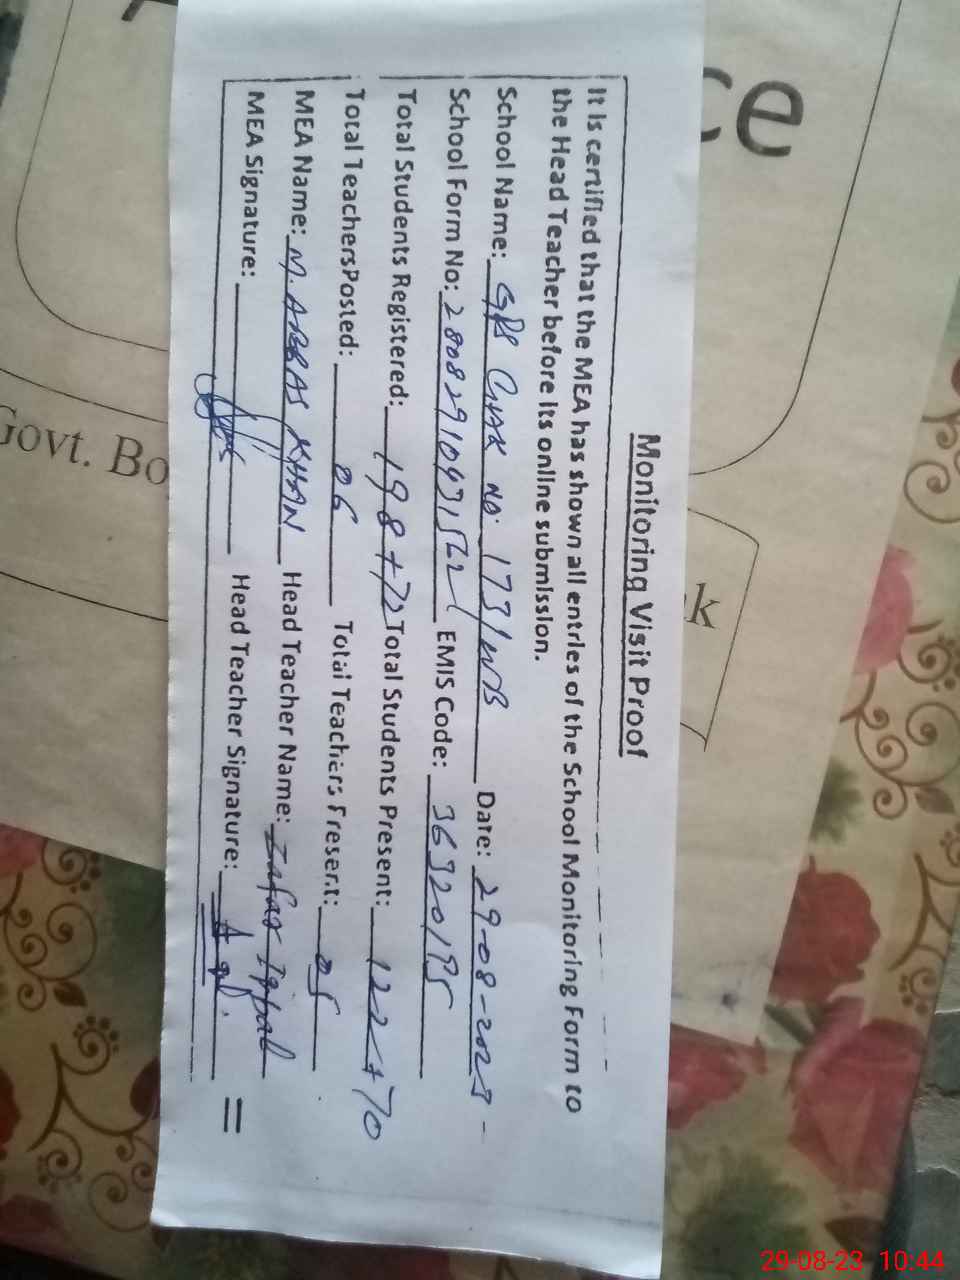 Monitoring Visit Proof
It is certified that the MEA has shown all entries of the School Monitoring Form to
the Head Teacher before its online submission.
School Name: GPS CHAK NO: 173/WB Date: 29-08-2023-
School Form No: EMIS Code: 36320195
Total Students Registered: 198+72 Total Students Present: 122+70
Total TeachersPosted: 06 Total Teachers Present: 05
MEA Name: M. ABBAS KHAN Head Teacher Name: Zafar Iqbal
MEA Signature: Head Teacher Signature:
=
ce
k
Govt. Bo
29-08-23 10:44